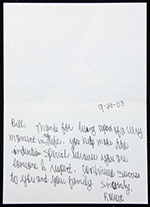 9-20-03
Bill, Thanks for being apart of a very
moment in life. You help make this
induction special because you are
someone I respect. Continued success
to you and your family. Sincerely,